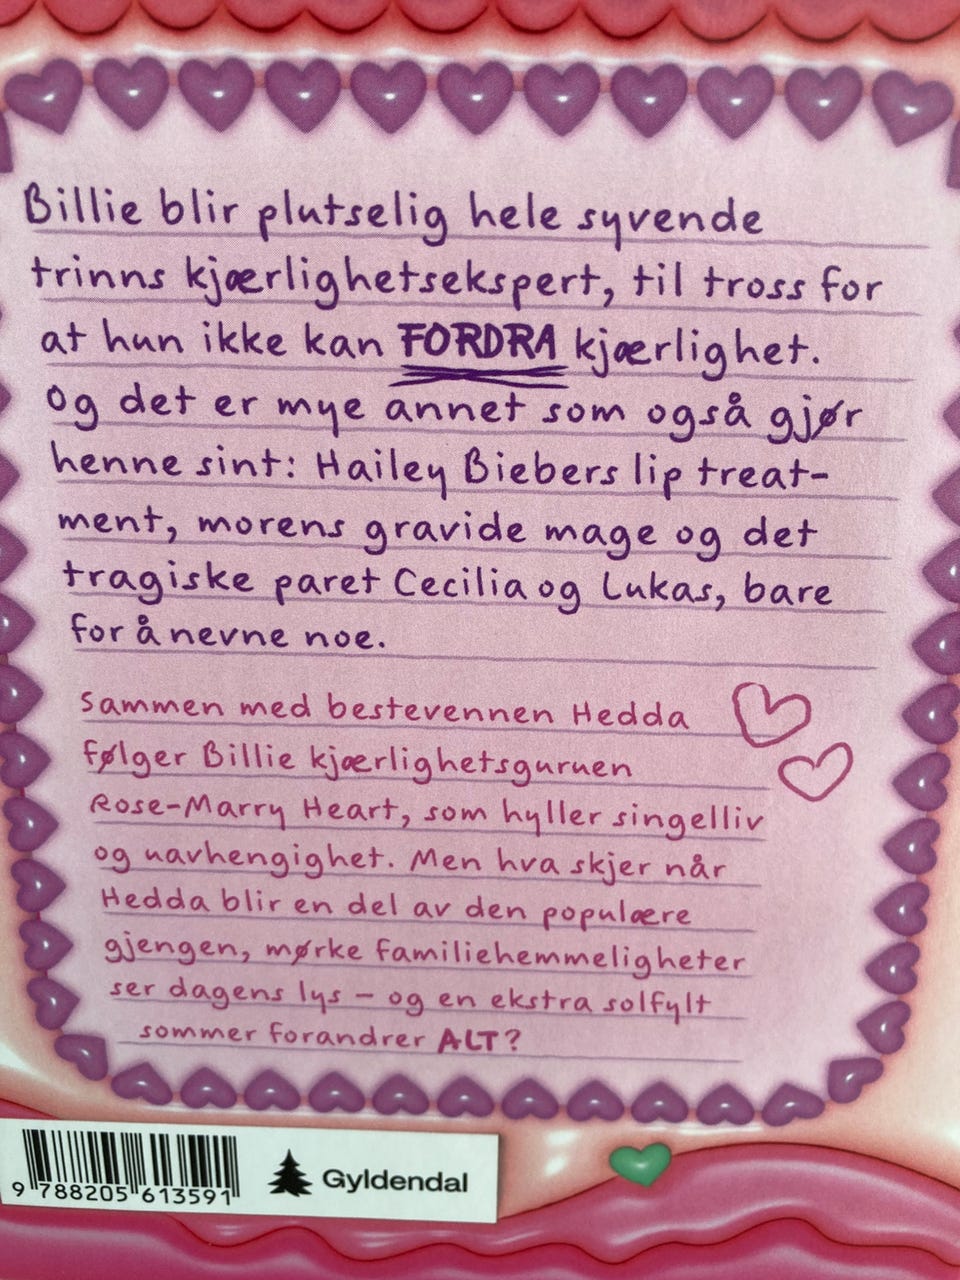 Billie blir plutselig hele syvende
trinns kjærlighetsekspert, til tross for
at hun ikke kan FORDRA kjærlighet.
Og det er mye annet som også gjør
henne sint: Hailey Biebers lip treat-
ment, morens gravide mage og det
tragiske paret Cecilia og Lukas, bare
for å nevne noe.
Sammen med bestevennen Hedda
følger Billie kjærlighetsguruen
Rose-Marry Heart, som hyller singelliv
og uavhengighet. Men hva skjer når
Hedda blir en del av den populære
gjengen, mørke familiehemmeligheter
ser dagens lys – og en ekstra solfylt
sommer forandrer ALT?
9 788205 613591
Gyldendal